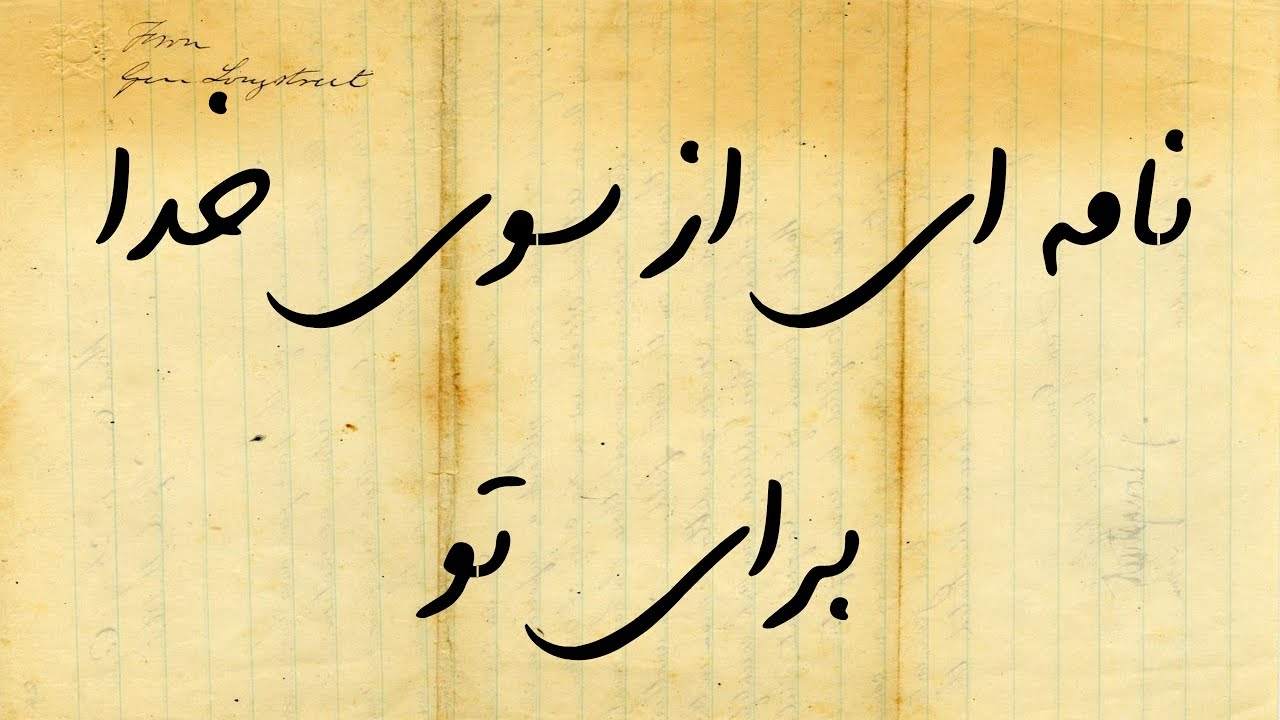 From
Gen Longstreet
نامه ای از سوی خدا
برای تو